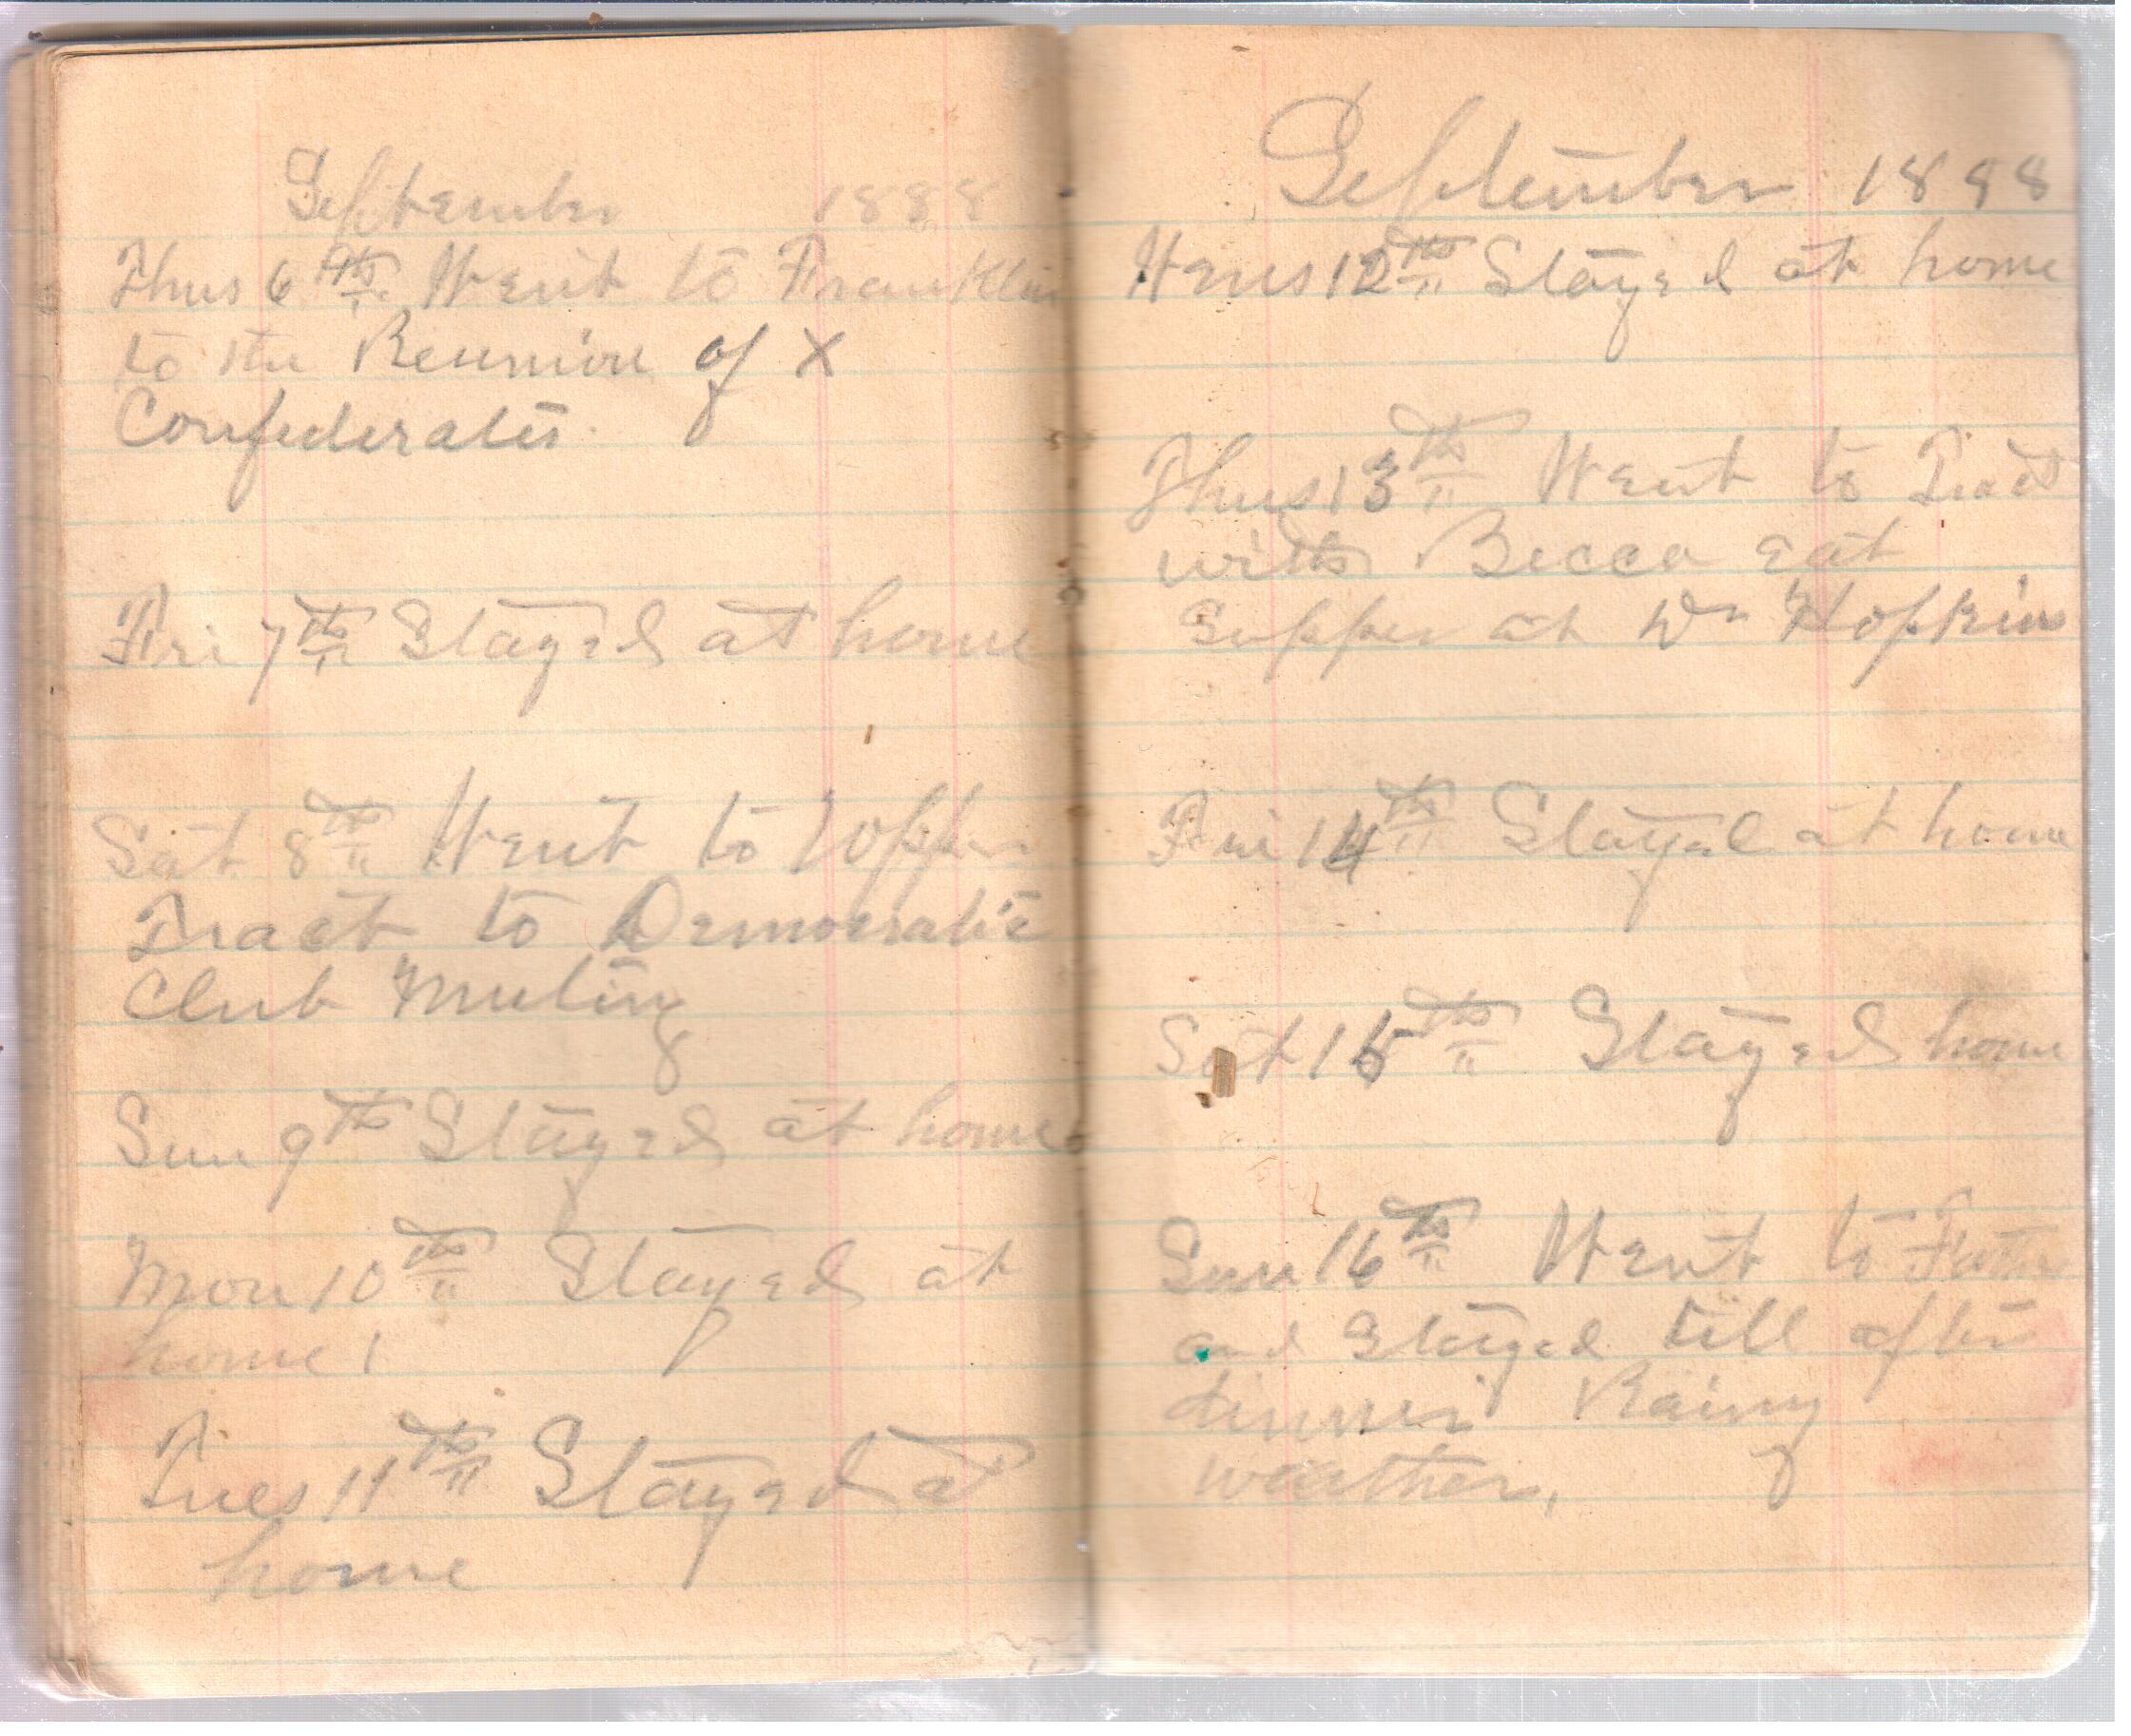 September 1888
Thus 6th Went to Franklin
to the Reunion of X
Confederates.
Fri 7th Stayed at home
Sat 8th Went to Upper
Tract to Democratic
Club Meeting
Sun 9th Stayed at home
Mon 10th Stayed at
home
Tues 11th Stayed at
home
September 1888
Wens 12th Stayed at home
Thus 13th Went to Tract
with Becca eat
Supper at Dr Hopkins
Fri 14th Stayed at home
Sat 15th Stayed home
Sun 16th Went to
and Stayed till after
dinner Rainy
weather,